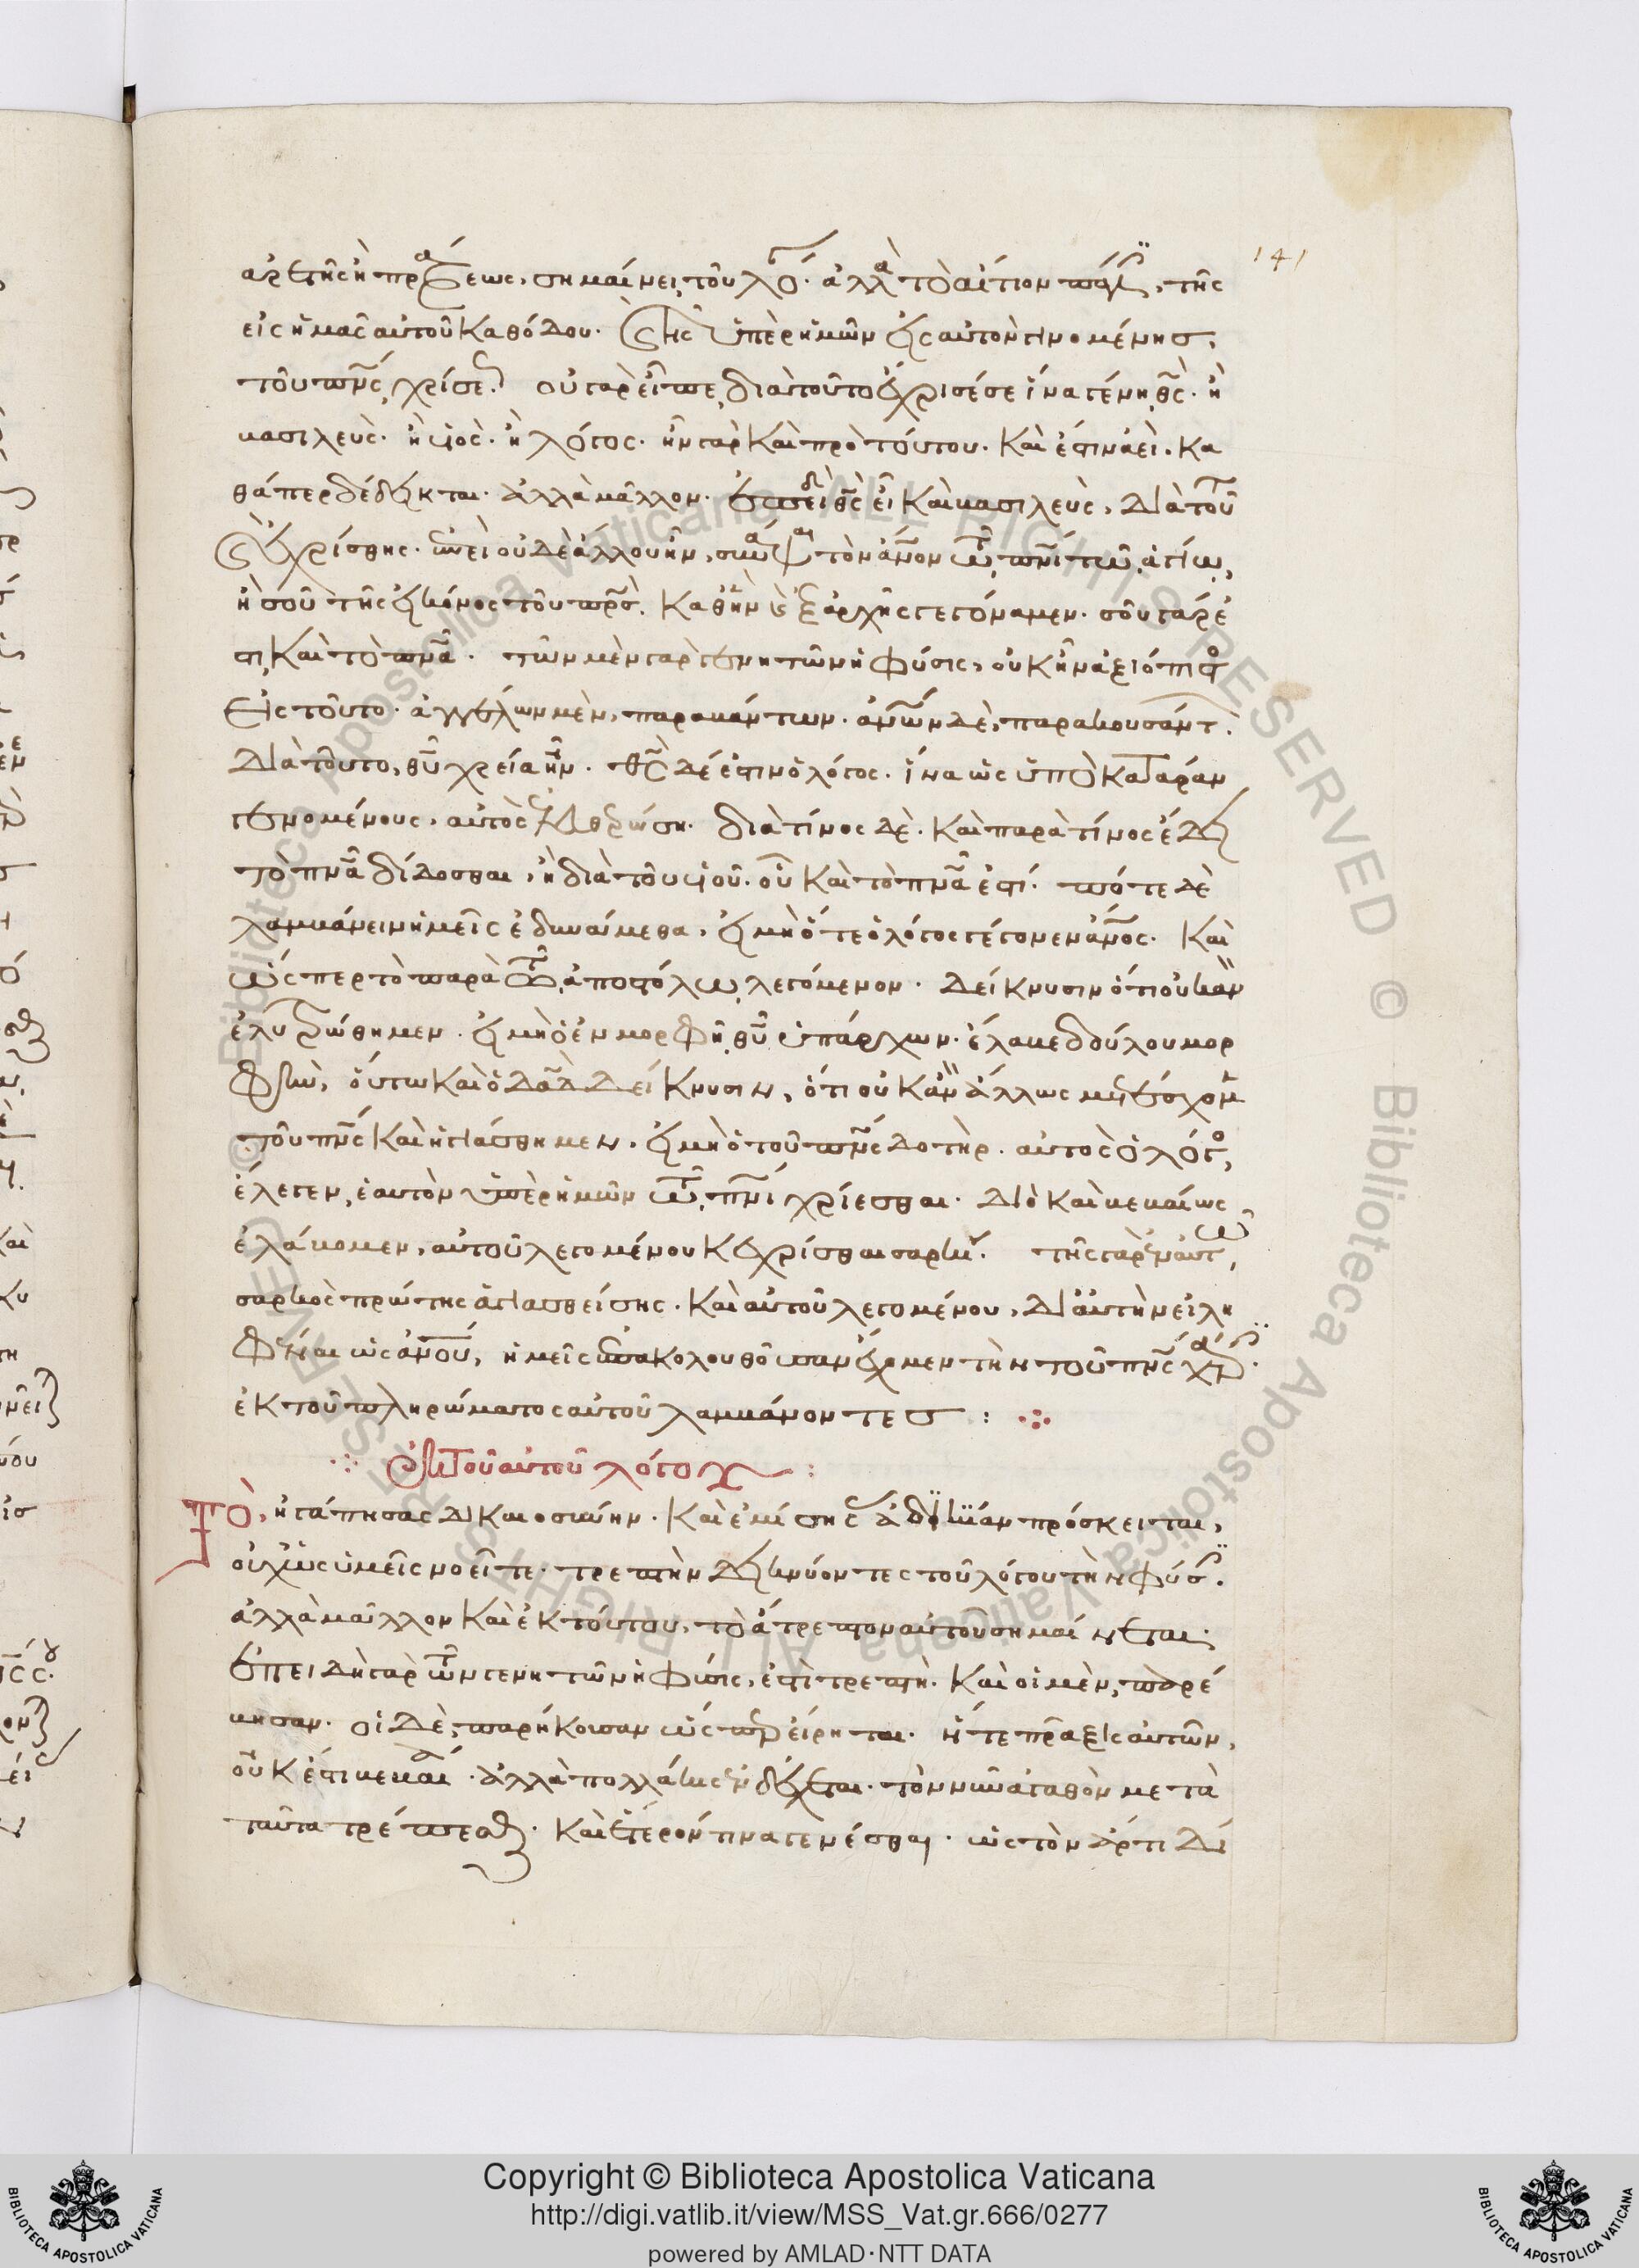 141
ἀρετῆς ἢ πράξεως, σημαίνει τοῦ λό. ἀλλὰ τὸ αἴτιον πάλιν, τῆς
εἰς ἡμᾶς αὐτοῦ καθόδου. καὶ τῆς ὑπὲρ ἡμῶν εἰς αὐτὸν γινομένης,
τοῦ πνς χρίσε. οὐ γὰρ εἶπε, διὰ τοῦτο ἔχρισέ σε ἵνα γένῃ θς. ἢ
βασιλεὺς. ἢ υἱὸς. ἢ λόγος. ἦν γὰρ καὶ πρὸ τούτου. καὶ ἔστιν ἀεὶ. κα
θάπερ δέδεικται. ἀλλὰ μᾶλλον. ἐπειδὴ θς εἶ καὶ βασιλεὺς, διὰ τοῦτο
καὶ ἐχρίσθης. ἐπεὶ οὐδὲ ἄλλου ἦν, συνάψαι τὸν ἄνον τῷ πνι τῷ ἁγίῳ,
ἢ σοῦ τῆς εἰκόνος τοῦ πρς. καθ' ἣν ἐξ ἀρχῆς γεγόναμεν. σοῦ γάρ ἐ
στι καὶ τὸ πνα. τῶν μὲν γὰρ γενητῶν ἡ φύσις, οὐκ ἦν ἀξιόπιστο
εἰς τοῦτο. ἀγγέλων μὲν, παραβάντων. ἀνων δὲ, παρακουσάντ.
διὰ τοῦτο, θυ χρεία ἦν. θς δέ ἐστιν ὁ λόγος. ἵνα ὡς ὑπὸ κατάραν
γενομένους, αὐτὸς ἐλευθερώσῃ. διὰ τίνος δὲ. καὶ παρὰ τίνος ἔδει
τὸ πνα δίδοσθαι, ἢ διὰ τοῦ υἱοῦ. οὗ καὶ τὸ πνα ἐστί. πότε δὲ
λαμβάνειν ἡμεῖς ἐδυνάμεθα, εἰ μὴ ὅτε ὁ λόγος γέγονεν ἄνος. καὶ
ὥσπερ τὸ παρὰ τῷ ἀποστόλῳ λεγόμενον. δείκνυσιν ὅτι οὐκ ἂν
ἐλυτρώθημεν. εἰ μὴ ὁ ἐν μορφῇ θυ ὑπάρχων. ἔλαβε δούλου μορ
φὴν, οὕτω καὶ ὁ δαδ δείκνυσιν, ὅτι οὐκ ἂν ἄλλως μετέσχομεν
τοῦ πνς καὶ ἡγιάσθημεν. εἰ μὴ ὁ τοῦ πνς δοτὴρ. αὐτὸς ὁ λόγο,
ἔλεγεν, ἑαυτὸν ὑπὲρ ἡμῶν τῷ πνι χρίεσθαι. διὸ καὶ βεβαίως
ἐλάβομεν, αὐτοῦ λεγομένου κεχρίσθαι σαρκὶ. τῆς γὰρ ἐν αὐτῷ,
σαρκὸς πρώτης ἁγιασθείσης. καὶ αὐτοῦ λεγομένου, δι' αὐτὴν εἰλη
φέναι ὡς ἀνου, ἡμεῖς ἐπακολουθοῦσαν ἔχομεν τὴν τοῦ πνς χάριν.
ἐκ τοῦ πληρώματος αὐτοῦ λαμβάνοντες :
ἐκ τοῦ αὐτοῦ λόγου :
Τὸ, ἠγάπησας δικαιοσύνην. καὶ ἐμίσησας ἀδικίαν πρόσκειται,
οὐχ ὡς ὑμεῖς νοεῖτε. τρεπτὴν δεικνύοντες τοῦ λόγου τὴν φύσ.
ἀλλὰ μᾶλλον καὶ ἐκ τούτου, τὸ ἄτρεπτον αὐτοῦ σημαίνεται.
ἐπειδὴ γὰρ τῶν γενητῶν ἡ φύσις, ἐστὶ τρεπτὴ. καὶ οἱ μὲν, παρέ
βησαν. οἱ δὲ, παρήκουσαν ὥσπερ εἴρηται. ἥ τε πρᾶξις αὐτῶν,
οὐκ ἔστι βεβαία. ἀλλὰ πολλάκις ἐνδέχεται. τὸν νῦν ἀγαθὸν μετὰ
ταῦτα τρέπεσθαι. καὶ ἕτερόν τινα γενέσθαι. ὡς τὸν ἄρτι δί
Copyright © Biblioteca Apostolica Vaticana
http://digi.vatlib.it/view/MSS_Vat.gr.666/0277
powered by AMLAD·NTT DATA